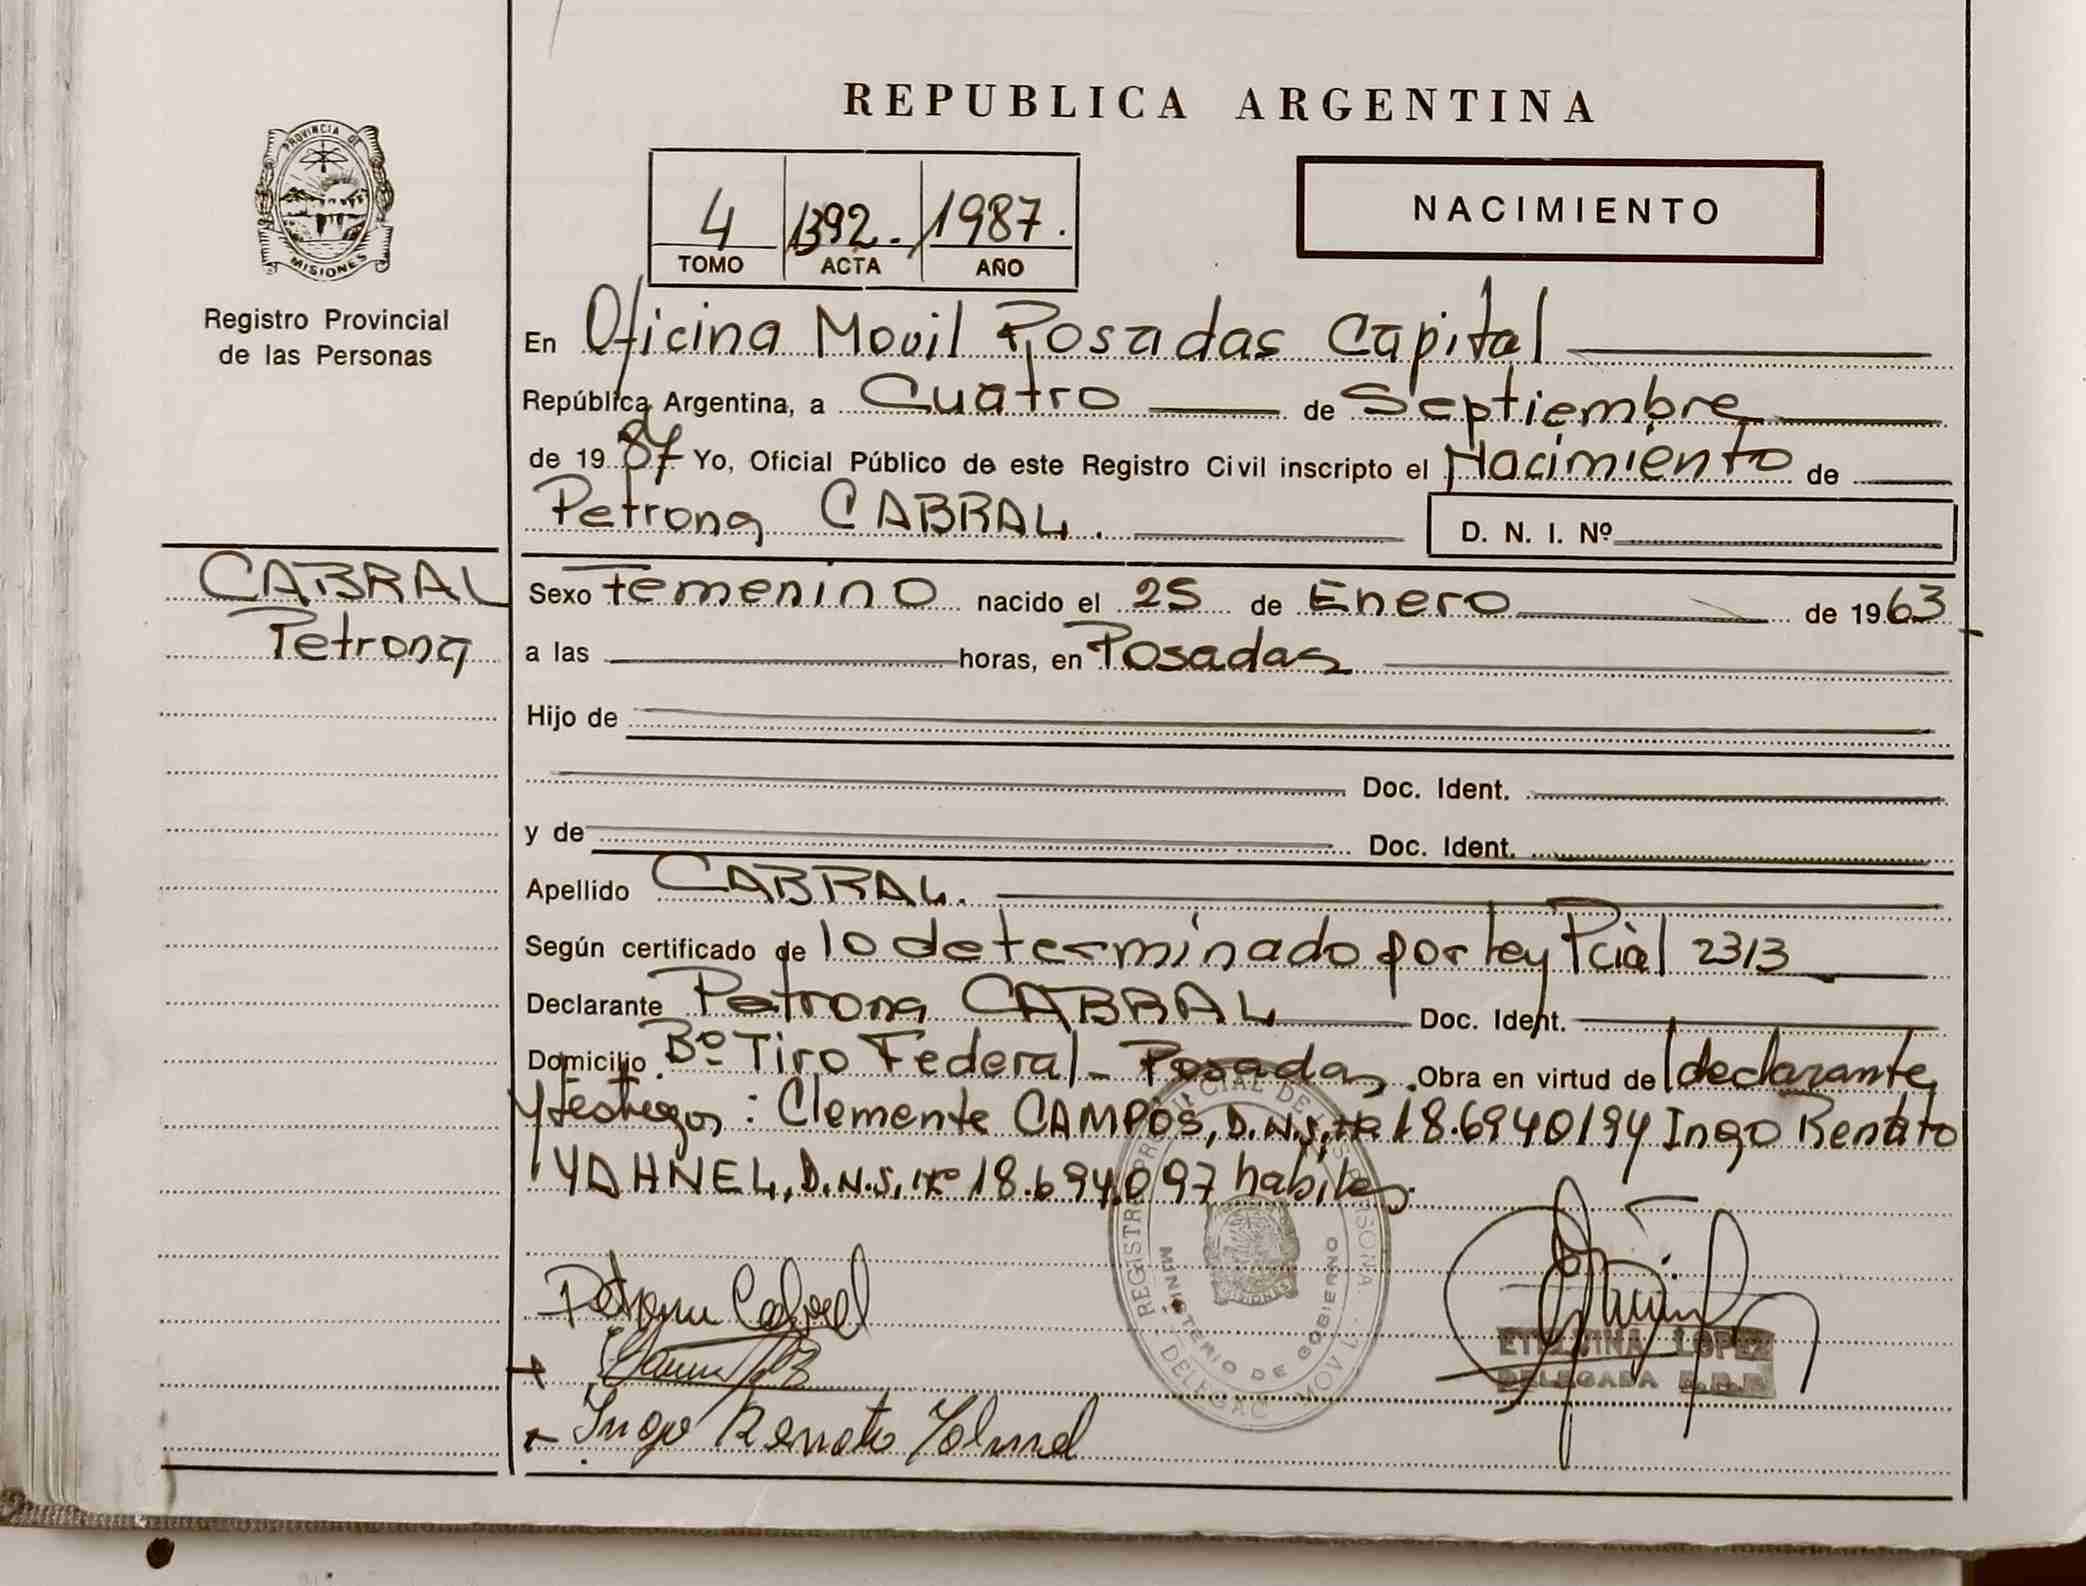 REPUBLICA ARGENTINA
PROVINCIA DE
MISIONES
Registro Provincial
de las Personas
4 1392. 1987.
TOMO ACTA AÑO
NACIMIENTO
En Oficina Movil Posadas Capital
República Argentina, a Cuatro de Septiembre
de 1987. Yo, Oficial Público de este Registro Civil inscripto el Nacimiento de
Petrona CABRAL.
D. N. I. Nº
CABRAL
Petrona
Sexo Femenino nacido el 25 de Enero de 1963
a las horas, en Posadas
Hijo de
Doc. Ident.
y de Doc. Ident.
Apellido CABRAL.
Según certificado de lo determinado por ley Pcial 2313
Declarante Petrona CABRAL Doc. Ident.
Domicilio Bº Tiro Federal - Posadas. Obra en virtud de declarante
y testigos: Clemente CAMPOS, D.N.I. Nº 18.6940194 Ingo Renato
YAHNEL, D.N.I. Nº 18.694.097 habiles.
REGISTRO PROVINCIAL DE LAS PERSONAS
MINISTERIO DE GOBIERNO
DELEGAC MOVIL
Petrona Cabral
Ingo Renato Yahnel
ETELVINA LOPEZ
DELEGADA